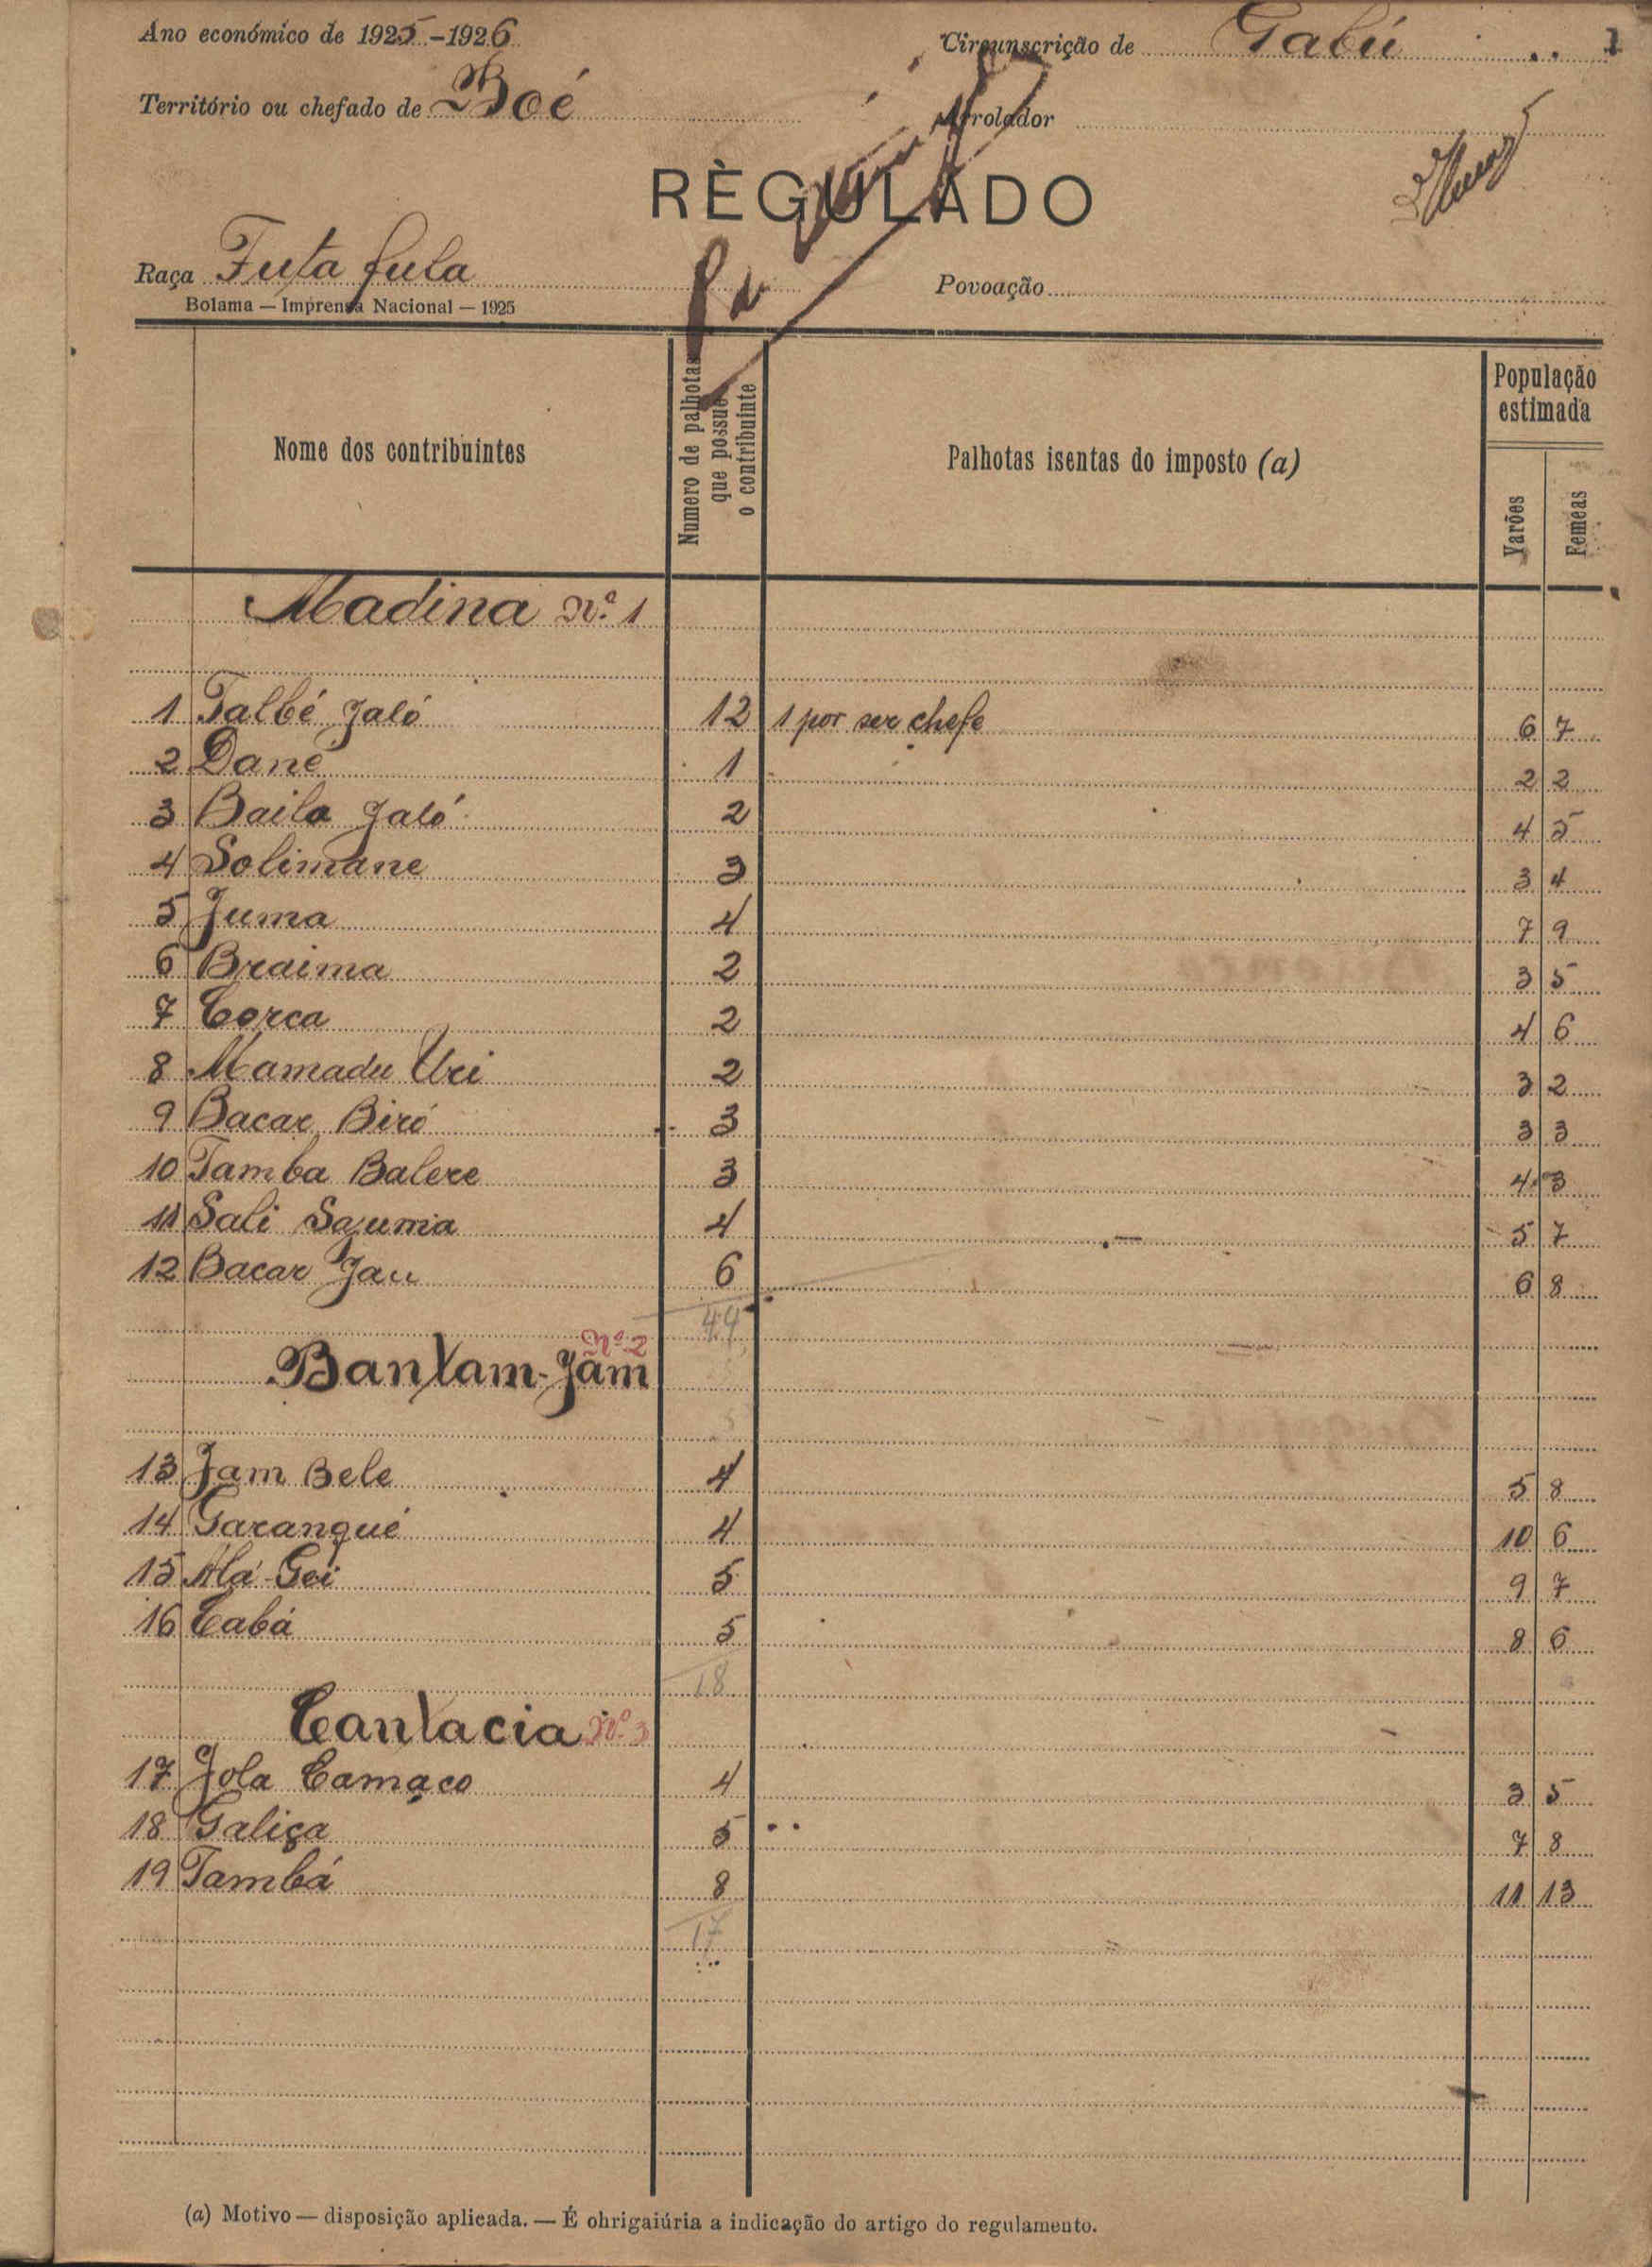 Ano económico de 1925-1926
Circunscrição de Gabú 1
Território ou chefado de Boé
Arrolador
RÈGULADO
Raça Futa fula
Povoação
Bolama — Imprensa Nacional — 1925
Nome dos contribuintes
Numero de palhotas que possue o contribuinte
Palhotas isentas do imposto (a)
População estimada
Varões
Femeas
Madina Nº 1
1 Talbé Jaló 12 1 por ser chefe 6 7
2 Dané 1 2 2
3 Bailo Jaló 2 4 5
4 Solimane 3 3 4
5 Juma 4 7 9
6 Braima 2 3 5
7 Corca 2 4 6
8 Mamadu Uri 2 3 2
9 Bacar Biró 3 3 3
10 Tamba Balere 3 4 3
11 Sali Sauma 4 5 7
12 Bacar Jau 6 6 8
44
Nº 2
Bantam-Jam
13 Jam Bele 4 5 8
14 Garanqué 4 10 6
15 Alá-Gei 5 9 7
16 Cabá 5 8 6
18
Cantacia Nº 3
17 Jola Camaco 4 3 5
18 Galiça 5 7 8
19 Tambá 8 11 13
17
(a) Motivo — disposição aplicada. — É ohrigaiúria a indicação do artigo do regulamento.